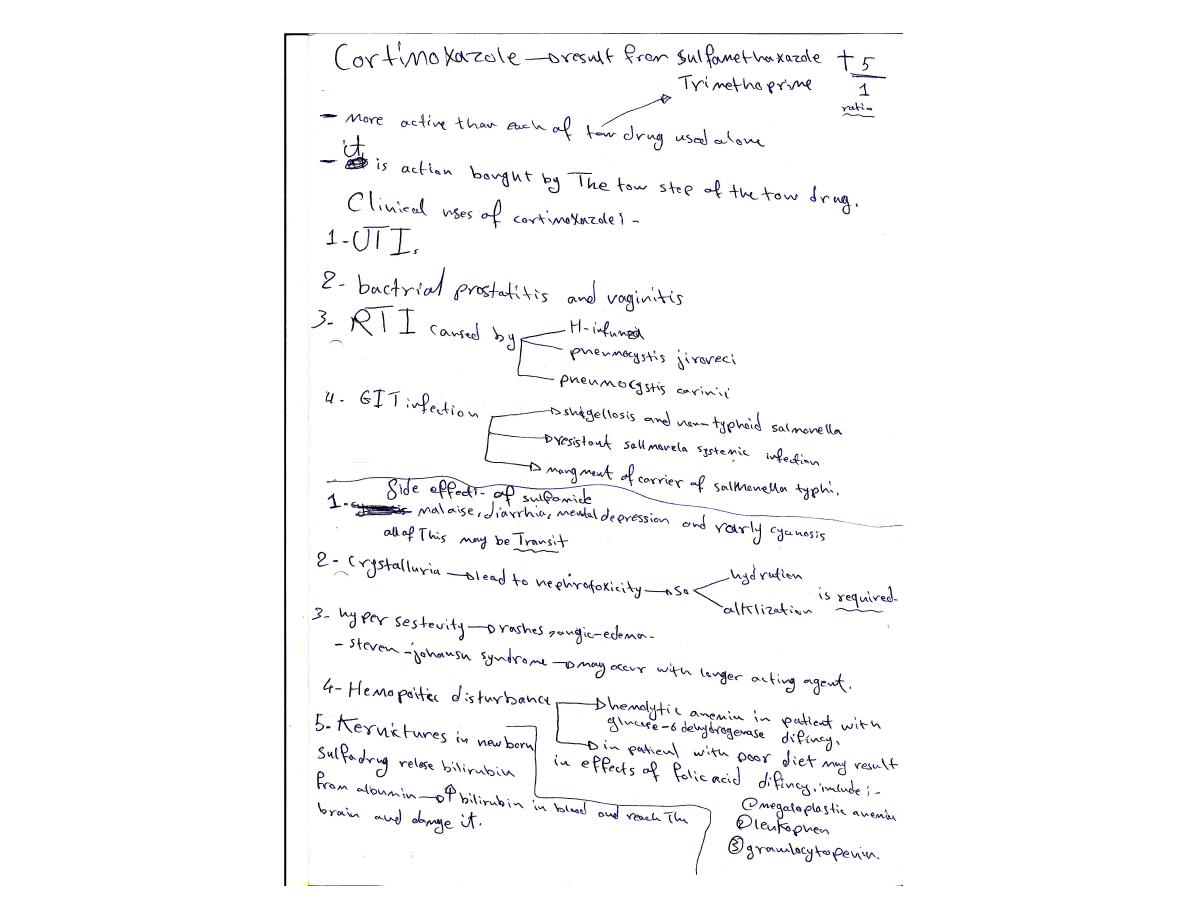 Cortimoxazole → result from sulfamethaxazole + 5
Trimethoprime 1
ratio
- More active than each of tow drug used alone
- it is action bought by The tow step of the tow drug.
Clinical uses of cortimoxazole:-
1- UTI.
2- bactrial prostatitis and vaginitis
3- RTI caused by
H-infunza
pneumocystis jiroveci
pneumocystis carinii
4- GIT infection
→ shigellosis and non-typhoid salmonella
→ resistant sallmonela systemic infection
→ mangment of carrier of sallmonella typhi.
Side effect- of sulfomide
1- malaise, diarrhia, mental depression and rarly cyanosis
all of This may be Transit
2- Crystalluria → lead to nephrotoxicity → So
hydrution
alkilization
is required-
3- hyper sestevity → rashes, angic-edema-
- steven-johansn syndrome → may occur with longer acting agent.
4- Hemopoitic disturbance
→ hemolytic anemia in patient with
glucose-6 dehydrogenase difincy.
→ in patient with poor diet may result
in effects of folic acid difincy, include:-
① megaloplastic anemia
② leukophen
③ granulocytopenin.
5- Kernictures in new born
Sulfadrug relese bilirubin
from albumin → ↑ bilirubin in blood and reach The
brain and damge it.